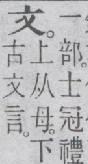 一部。士冠禮
文。
上从母。下
古文言。